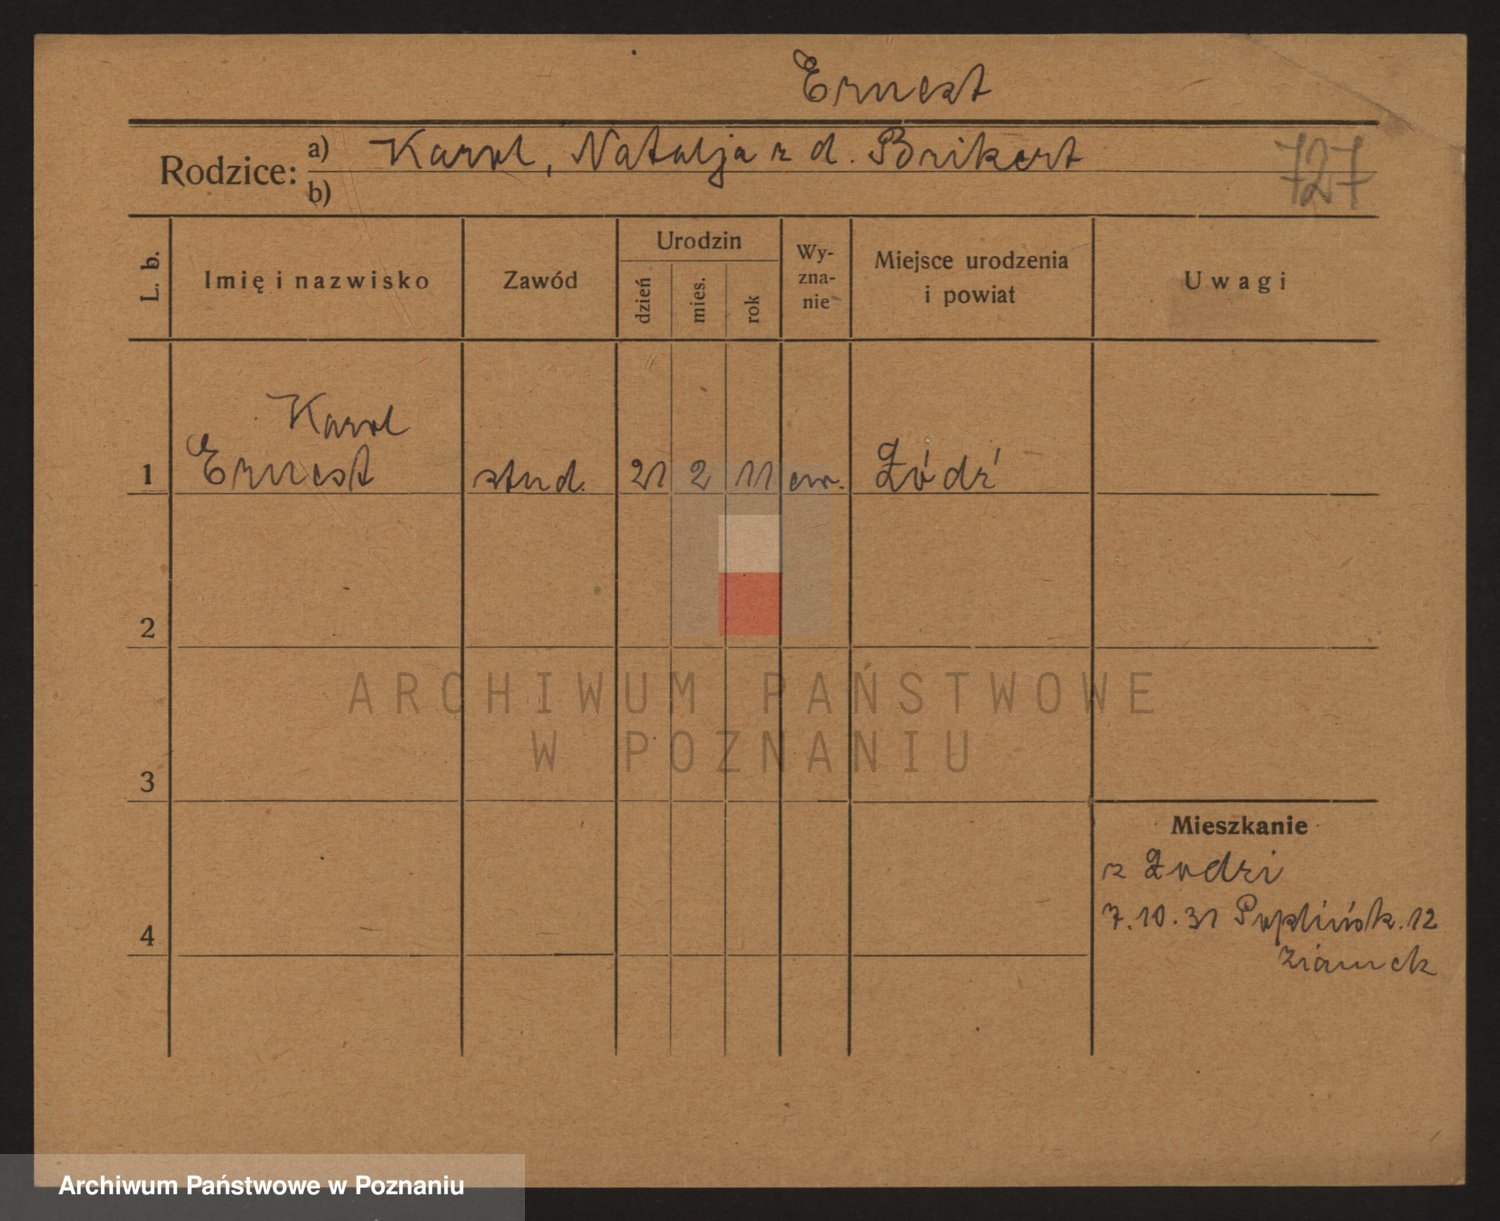 Ernest
Rodzice: a) Karol, Natalja z d. Brikert
b)
727
L. b. Imię i nazwisko Zawód Urodzin dzień mies. rok Wyznanie Miejsce urodzenia i powiat Uwagi
Karol
1 Ernest stud. 21 2 11 ew. Łódź
2
3
4
Mieszkanie
z Łodzi
7.10.31 Poplińsk. 12
ARCHIWUM PAŃSTWOWE
W POZNANIU
Archiwum Państwowe w Poznaniu